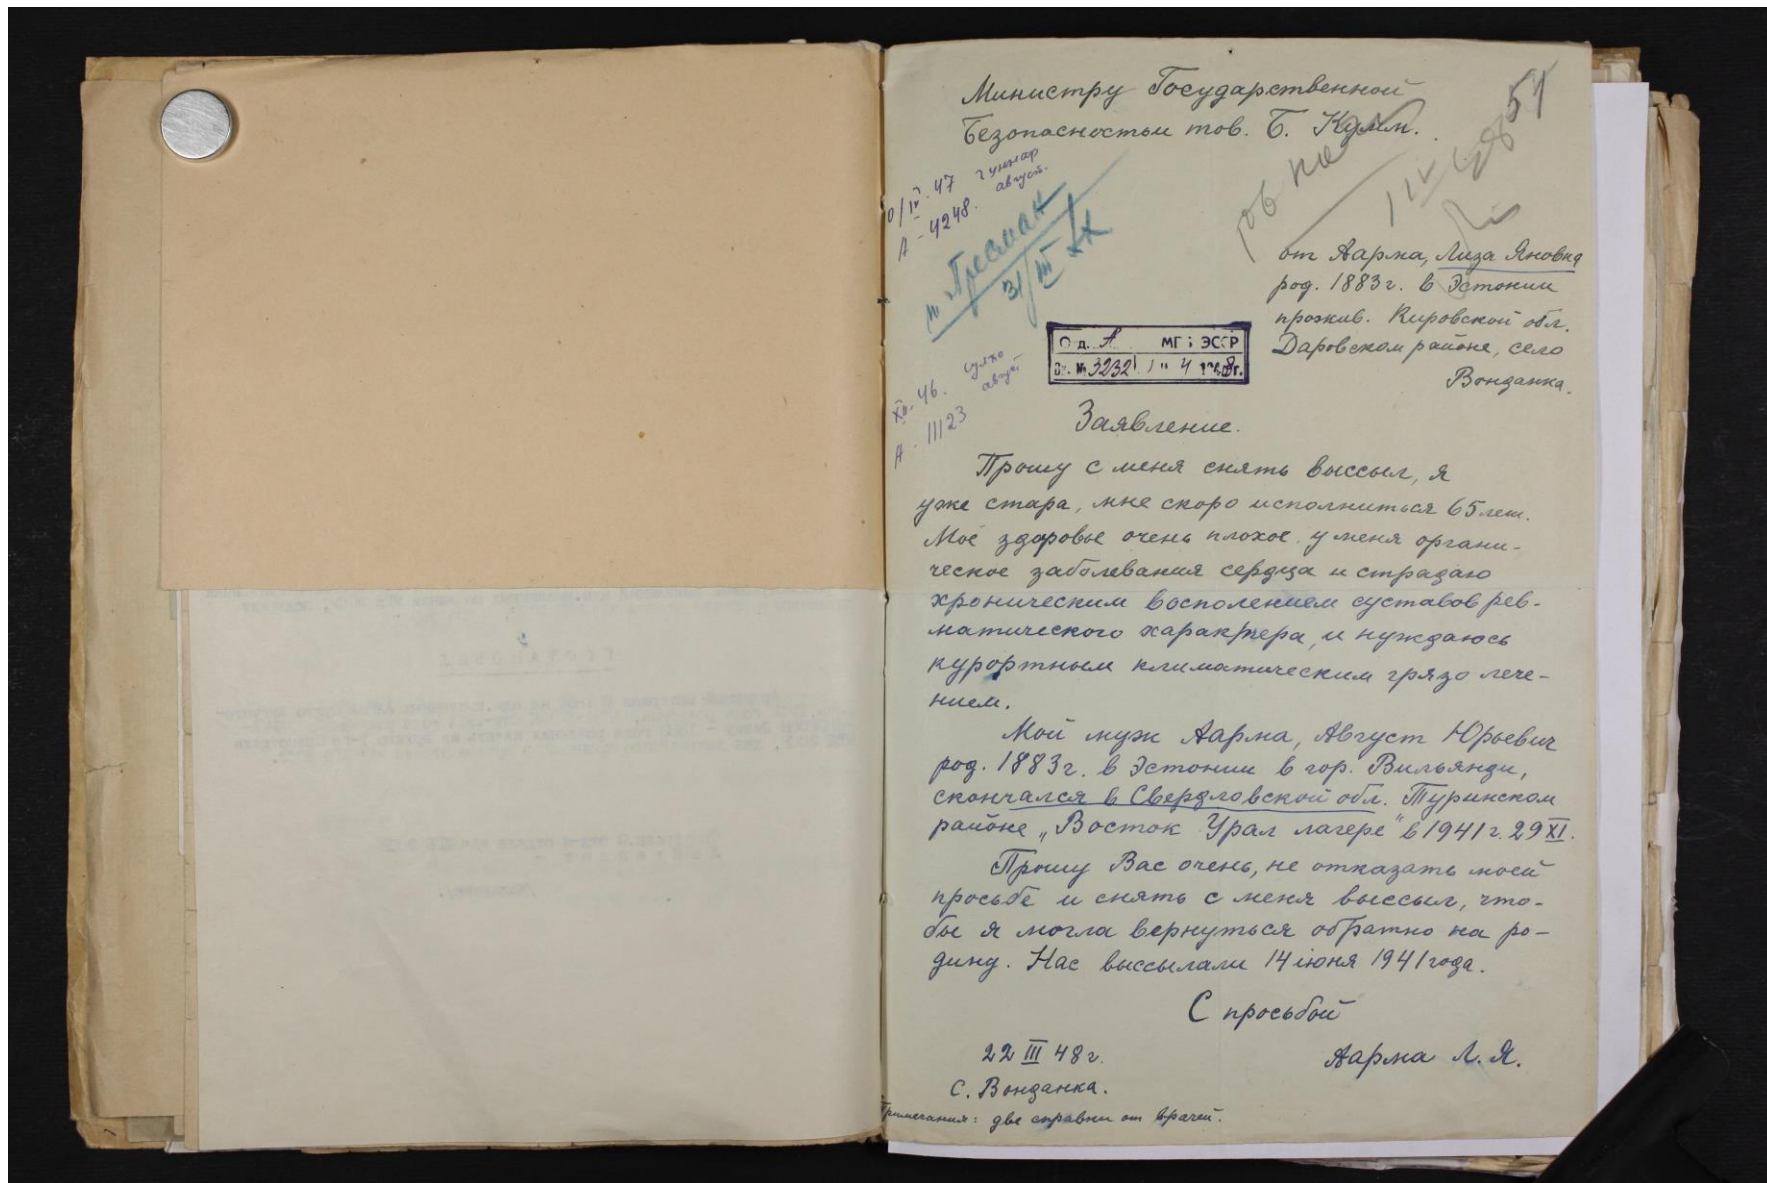 Министру Государственной
Безопасностьи тов. Б. Кумм.
54
/IV.47 гуннар
август.
А-4248.
т. Пресман
31/III
от Аарма, Лиза Яновна
род. 1883 г. в Эстонии
прожив. Кировской обл.
Даровском районе, село
Вонданка.
Отд. А МГБ ЭССР
Вх. № 3232 1 " 4 1948г.
XII-46. сулхо
август.
А-11123
Заявление.
Прошу с меня снять выссыл, я
уже стара, мне скоро исполниться 65 лет.
Моё здоровье очень плохое. у меня органи-
ческое заболевания сердца и страдаю
хроническим восполением суставов рев-
матического характера, и нуждаюсь
курортным климатическим грязо лече-
нием.
Мой муж Аарма, Август Юрьевич
род. 1883 г. в Эстонии в гор. Вильянди,
скончался в Свердловской обл. Туринском
районе „Восток Урал лагере" в 1941 г. 29 XI.
Прошу Вас очень, не отказать моей
просьбе и снять с меня выссыл, что-
бы я могла вернуться обратно на ро-
дину. Нас выссылали 14 июня 1941 года.
С просьбой
22 III 48 г.
Аарма Л. Я.
С. Вонданка.
Примечания: две справки от врачей.